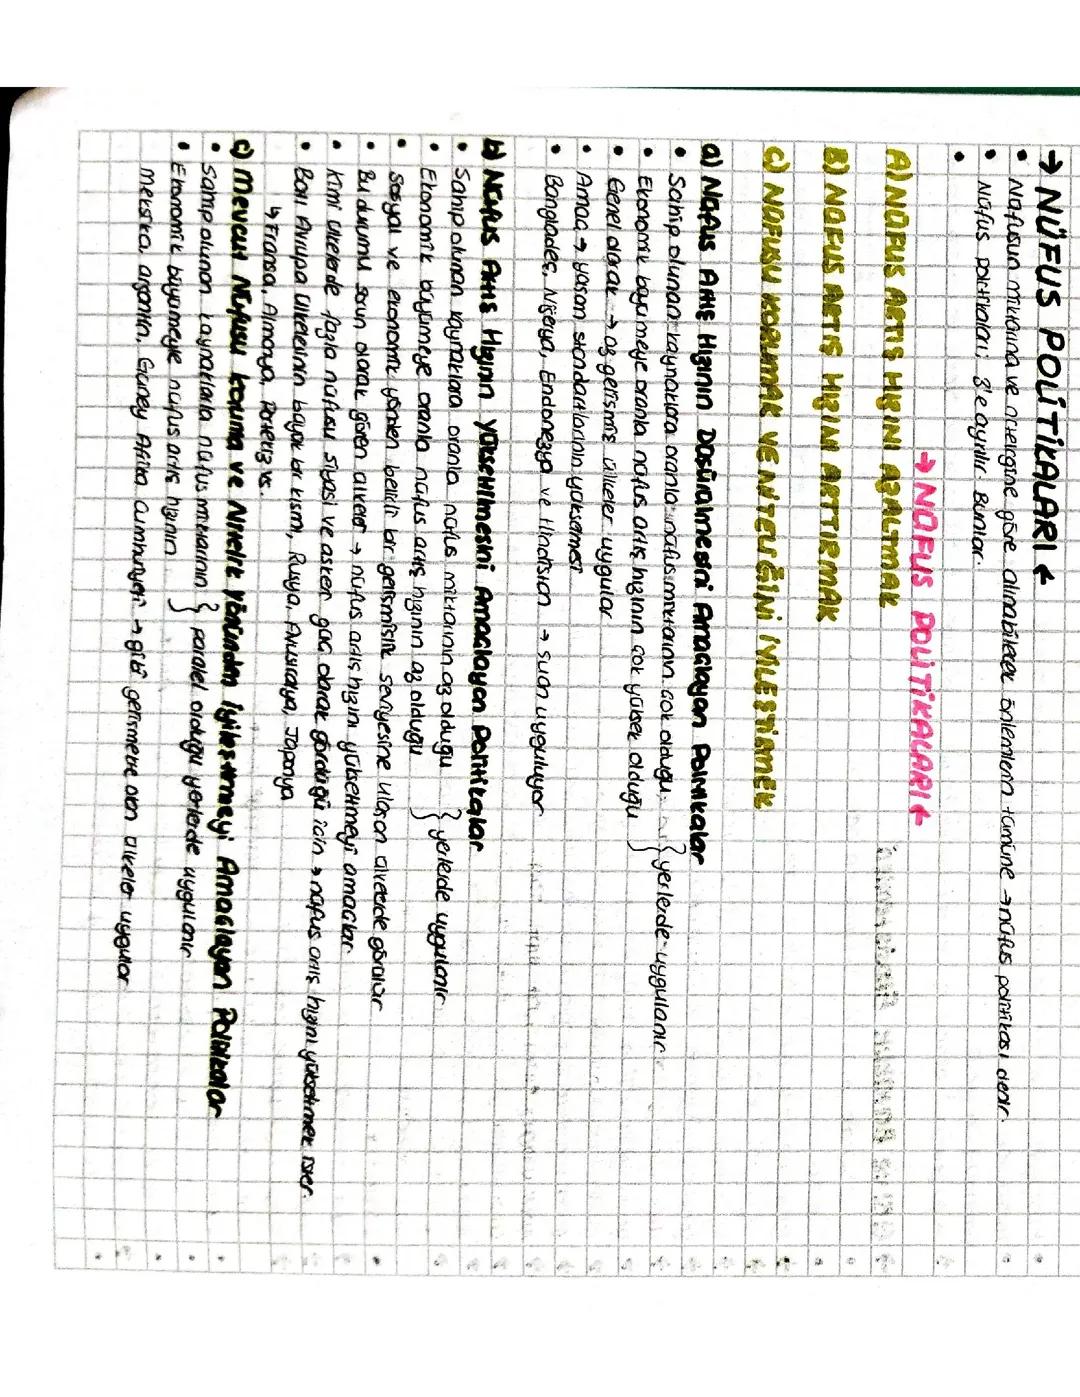 → NÜFUS POLİTİKALARI ←
• Nüfusun miktarına ve niteliğine göre alınabilecek önlemlerin tümüne → nüfus politikası denir.
• Nüfus politikaları; 3'e ayrılır. Bunlar:
•
→ NÜFUS POLİTİKALARI ←
A) NÜFUS ARTIŞ HIZINI AZALTMAK
B) NÜFUS ARTIŞ HIZINI ARTTIRMAK
C) NÜFUSU KORUMAK VE NİTELİĞİNİ İYİLEŞTİRMEK
a) Nüfus Artış Hızının Düşürülmesini Amaçlayan Politikalar
• Sahip olunan kaynaklara oranla nüfus miktarının çok olduğu } yerlerde uygulanır.
• Ekonomik büyümeye oranla nüfus artış hızının çok yüksek olduğu
• Genel olarak → az gelişmiş ülkeler uygular
• Amaç → yaşam standartlarının yükselmesi
• Bangladeş, Nijerya, Endonezya ve Hindistan → şuan uyguluyor
b) Nüfus Artış Hızının Yükseltilmesini Amaçlayan Politikalar
• Sahip olunan kaynaklara oranla nüfus miktarının az olduğu } yerlerde uygulanır.
• Ekonomik büyümeye oranla nüfus artış hızının az olduğu
• Sosyal ve ekonomik yönden belirli bir gelişmişlik seviyesine ulaşan ülkelerde görülür
• Bu durumu sorun olarak gören ülkeler → nüfus artış hızını yükseltmeyi amaçlar.
• Kimi ülkelerde fazla nüfusu siyasi ve askeri güç olarak gördüğü için → nüfus artış hızını yükseltmek ister.
• Batı Avrupa ülkelerinin büyük bir kısmı, Rusya, Avustralya, Japonya
↳ Fransa, Almanya, Portekiz vs.
c) Mevcut Nüfusu koruma ve Nitelik Yönünden İyileştirmeyi Amaçlayan Politikalar
• Sahip olunan kaynaklarla nüfus miktarının } paralel olduğu yerlerde uygulanır
• Ekonomik büyümeyle nüfus artış hızının
Meksika, arjantin, Güney Afrika Cumhuriyeti → gibi gelişmekte olan ülkeler uygular